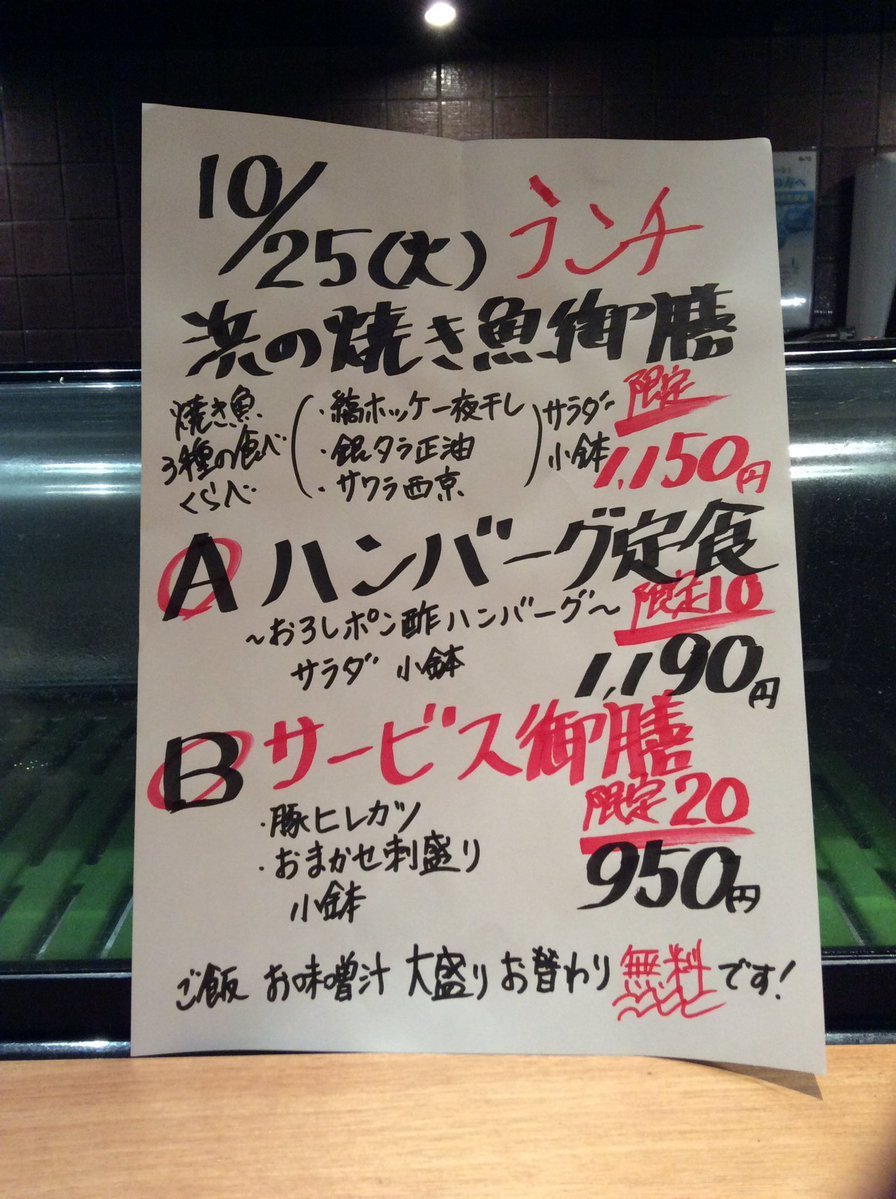 10/25(火) ランチ
浜の焼き魚御膳
焼き魚
3種の食べ
くらべ
・縞ホッケ一夜干し
・銀タラ正油
・サワラ西京
サラダ
小鉢
限定
1,150円
A ハンバーグ定食
～おろしポン酢ハンバーグ～
サラダ 小鉢
限定10
1,190円
B サービス御膳
・豚ヒレカツ
・おまかせ刺盛り
小鉢
限定20
950円
ご飯 お味噌汁 大盛り お替わり 無料です!